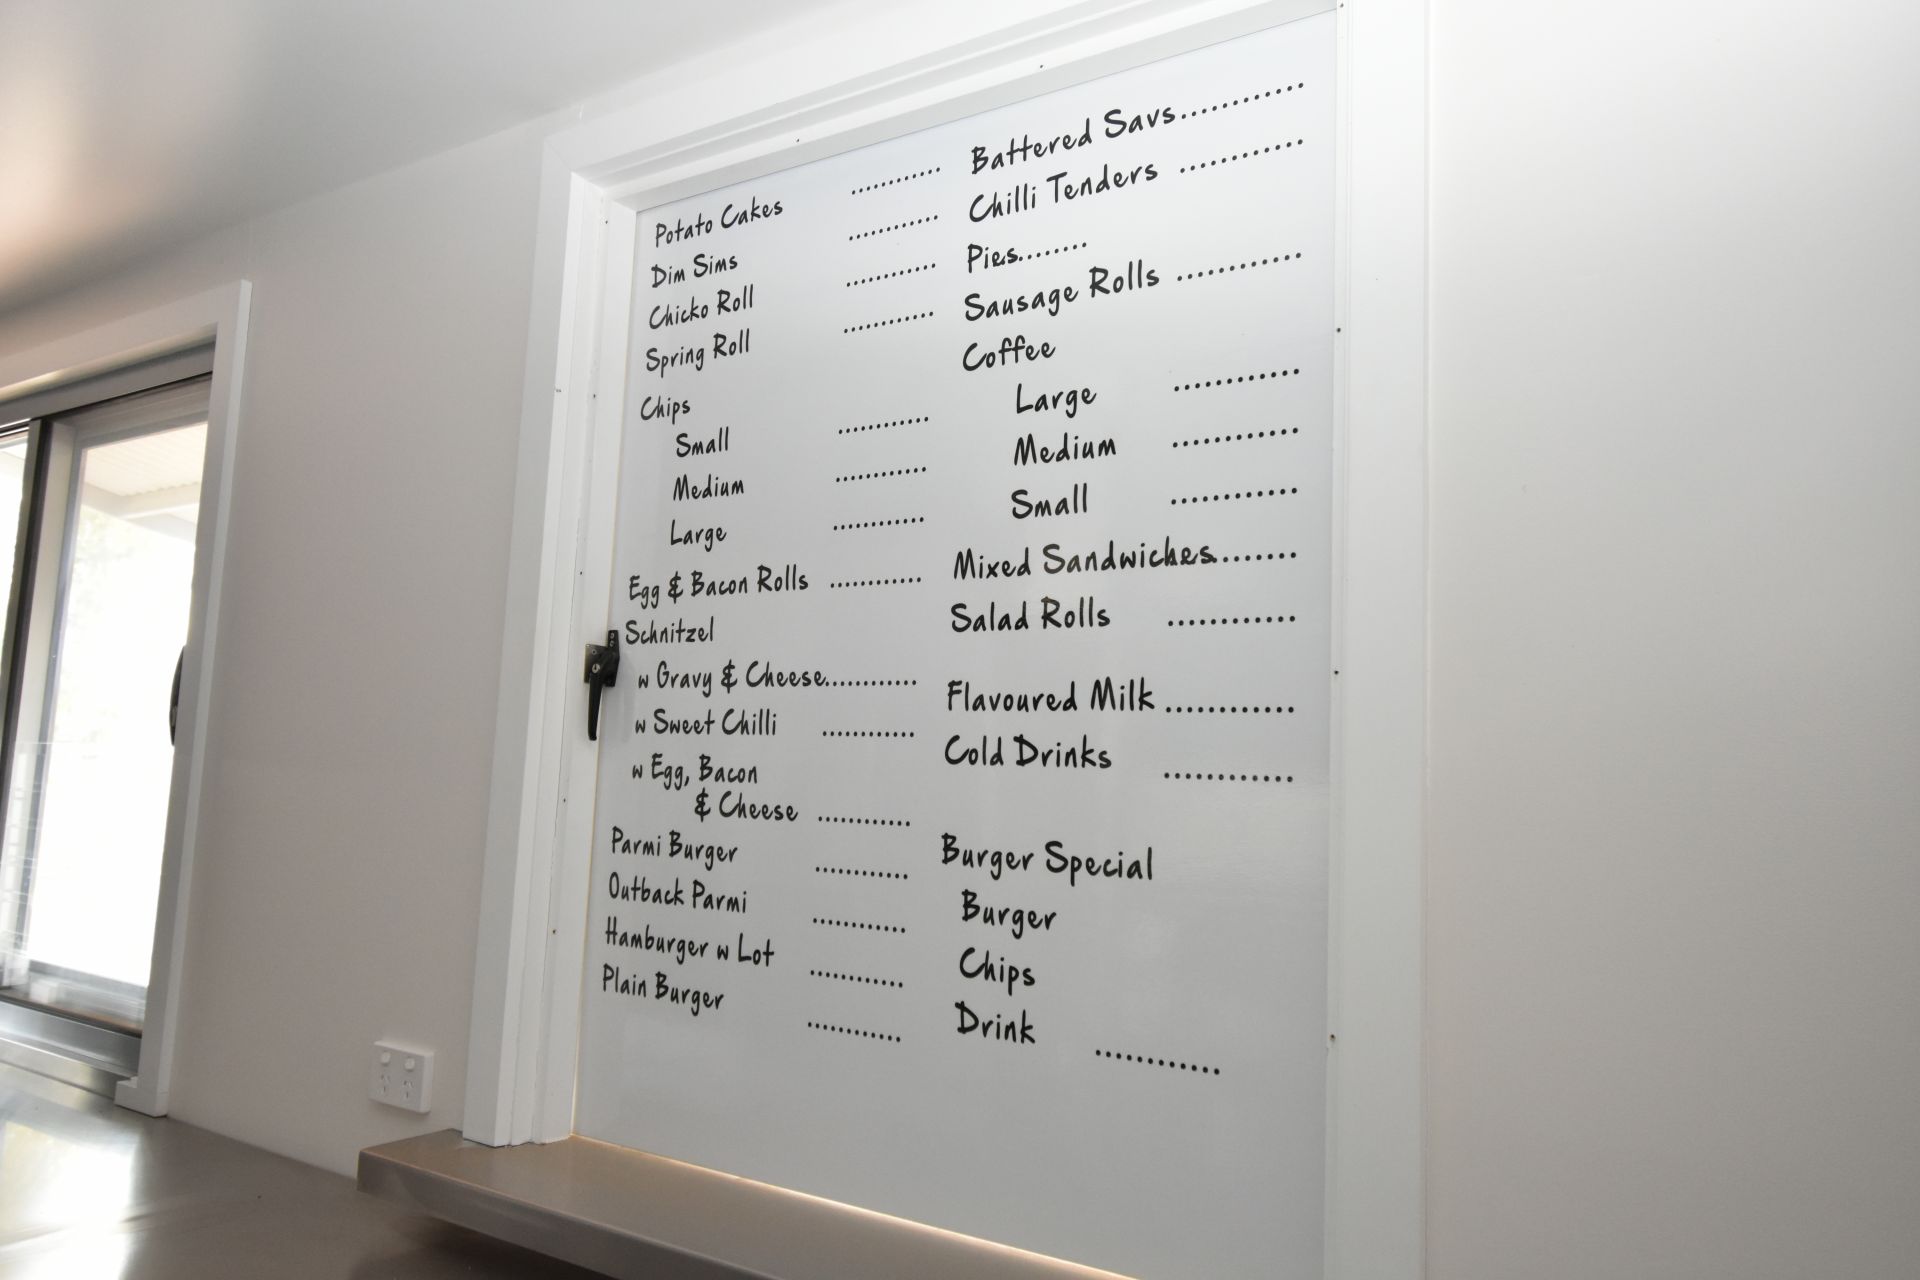 Potato Cakes ............
Dim Sims ............
Chicko Roll ............
Spring Roll ............
Chips
Small ............
Medium ............
Large ............
Egg & Bacon Rolls ............
Schnitzel
w Gravy & Cheese............
w Sweet Chilli ............
w Egg, Bacon
& Cheese ............
Parmi Burger ............
Outback Parmi ............
Hamburger w Lot ............
Plain Burger ............
Battered Savs............
Chilli Tenders ............
Pies........
Sausage Rolls ............
Coffee
Large ............
Medium ............
Small ............
Mixed Sandwiches........
Salad Rolls ............
Flavoured Milk ............
Cold Drinks ............
Burger Special
Burger
Chips
Drink ............